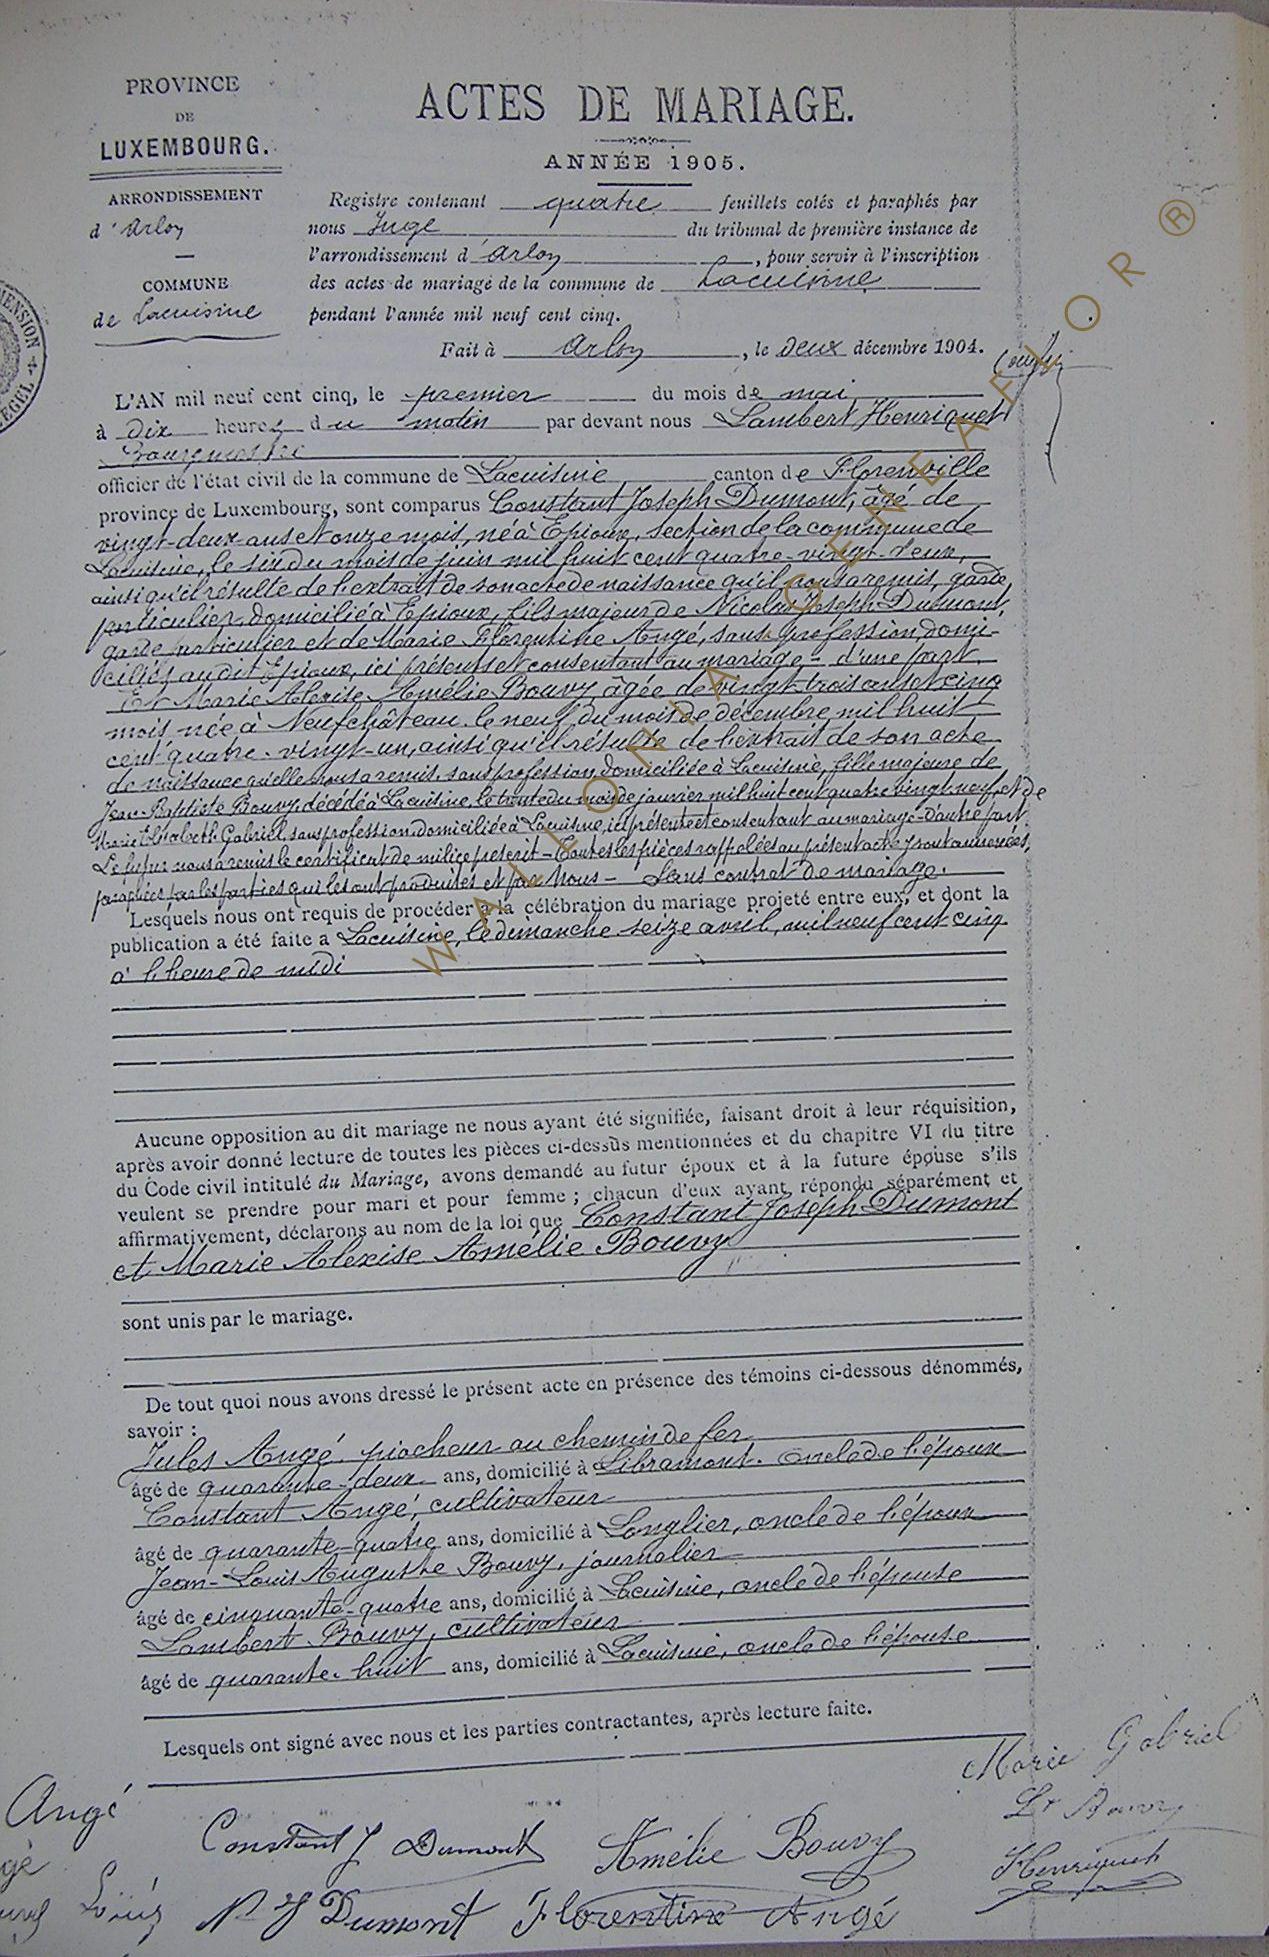 PROVINCE
DE
LUXEMBOURG.
ARRONDISSEMENT
d'Arlon
COMMUNE
de Lacuisine
ACTES DE MARIAGE.
ANNÉE 1905.
Registre contenant quatre feuillets cotés et paraphés par
nous Juge du tribunal de première instance de
l'arrondissement d'Arlon, pour servir à l'inscription
des actes de mariage de la commune de Lacuisine
pendant l'année mil neuf cent cinq.
Fait à Arlon, le deux décembre 1904.
L'AN mil neuf cent cinq, le premier du mois de mai
à dix heures du matin par devant nous Lambert Henriquet
Bourgmestre
officier de l'état civil de la commune de Lacuisine canton de Florenville
province de Luxembourg, sont comparus Constant Joseph Dumont, âgé de
vingt-deux ans et onze mois, né à Epioux, section de la commune de
Lacuisine, le six du mois de juin mil huit cent quatre-vingt-deux,
ainsi qu'il résulte de l'extrait de son acte de naissance qu'il nous a remis, garde
particulier, domicilié à Epioux, fils majeur de Nicolas Joseph Dumont,
garde particulier et de Marie Florentine Angé, sans profession, domi-
ciliés au dit Epioux, ici présents et consentant au mariage - d'une part.
Et Marie Alexise Amélie Bouvy âgée de vingt-trois ans et cinq
mois née à Neufchâteau le neuf du mois de décembre mil huit
cent quatre-vingt-un, ainsi qu'il résulte de l'extrait de son acte
de naissance qu'elle nous a remis, sans profession, domiciliée à Lacuisine, fille majeure de
Jean-Baptiste Bouvy, décédé à Lacuisine, le trente du mois de janvier mil huit cent quatre vingt neuf, et de
Marie Elisabeth Gabriel, sans profession, domiciliée à Lacuisine, ici présente et consentant au mariage - d'autre part
Le futur nous a remis le certificat de milice prescrit - Toutes les pièces rappelées au présent acte y sont annexées,
paraphées par les parties qui les ont produites et par Nous - Sans contrat de mariage.
Lesquels nous ont requis de procéder à la célébration du mariage projeté entre eux, et dont la
publication a été faite a Lacuisine, le dimanche seize avril, mil neuf cent cinq
à l'heure de midi
Aucune opposition au dit mariage ne nous ayant été signifiée, faisant droit à leur réquisition,
après avoir donné lecture de toutes les pièces ci-dessus mentionnées et du chapitre VI du titre
du Code civil intitulé du Mariage, avons demandé au futur époux et à la future épouse s'ils
veulent se prendre pour mari et pour femme ; chacun d'eux ayant répondu séparément et
affirmativement, déclarons au nom de la loi que Constant Joseph Dumont
et Marie Alexise Amélie Bouvy
sont unis par le mariage.
De tout quoi nous avons dressé le présent acte en présence des témoins ci-dessous dénommés,
savoir :
Jules Angé, piocheur au chemin de fer
âgé de quarante-deux ans, domicilié à Libramont, oncle de l'époux
Constant Angé, cultivateur
âgé de quarante-quatre ans, domicilié à Longlier, oncle de l'époux
Jean-Louis Auguste Bouvy, journalier
âgé de cinquante-quatre ans, domicilié à Lacuisine, oncle de l'épouse
Lambert Bouvy, cultivateur
âgé de quarante-huit ans, domicilié à Lacuisine, oncle de l'épouse
Lesquels ont signé avec nous et les parties contractantes, après lecture faite.
Marie Gabriel
Angé
Lt Bouvy
Constant J Dumont Amélie Bouvy
Henriquet
N J Dumont Florentine Angé
WALLONIA GENEAFLOR ®